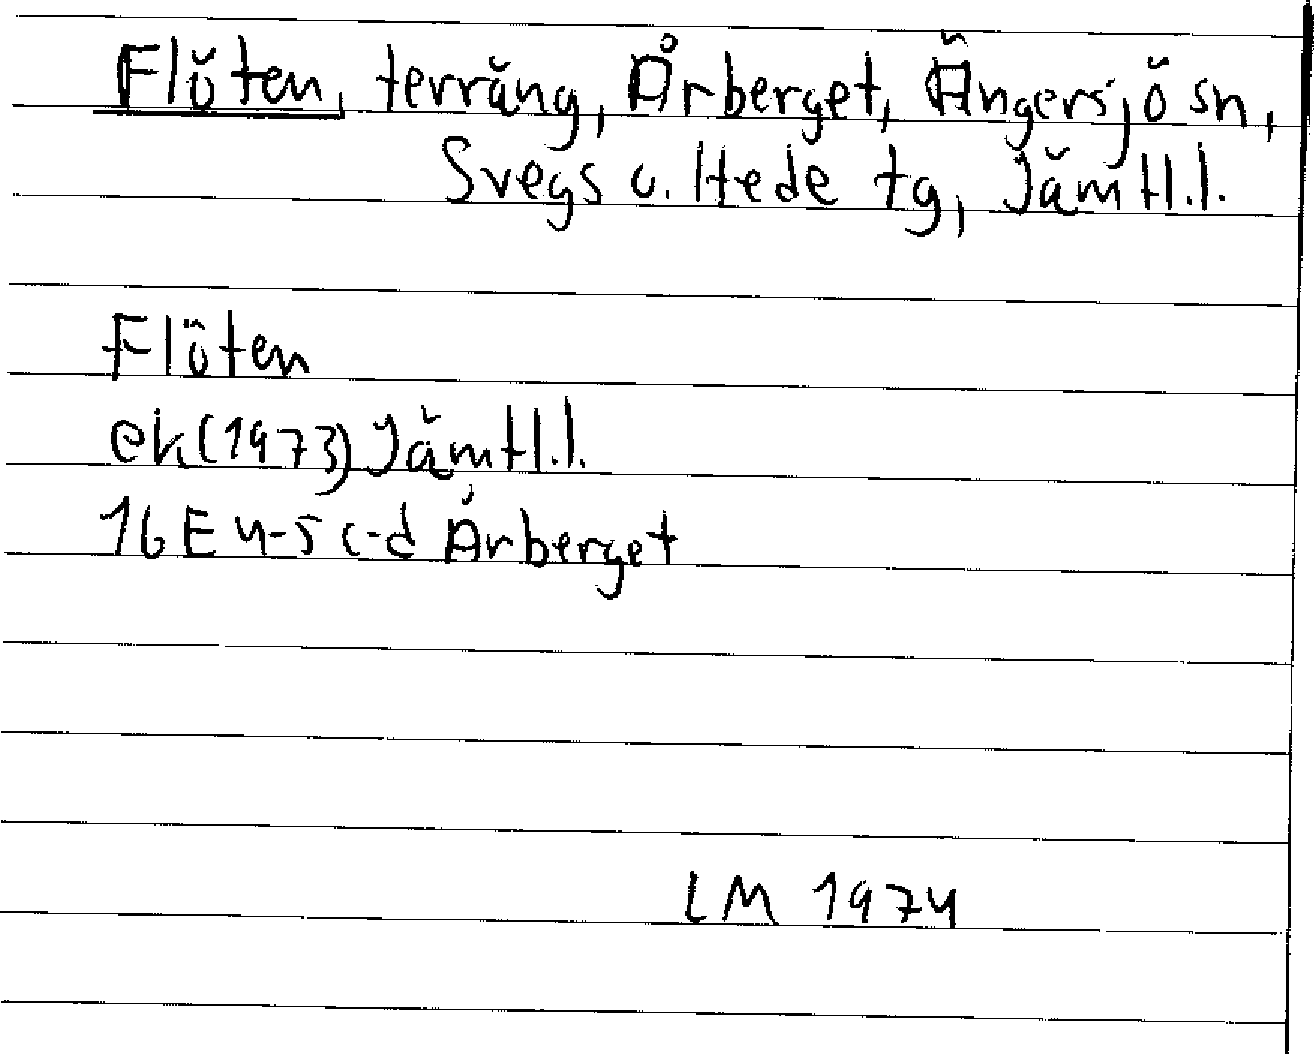 Flöten, terräng, Årberget, Ängersjö sn,
Svegs o. Hede tg, Jämtl.l.
Flöten
ek(1973) Jämtl.l.
16E 4-5 c-d Årberget
LM 1974